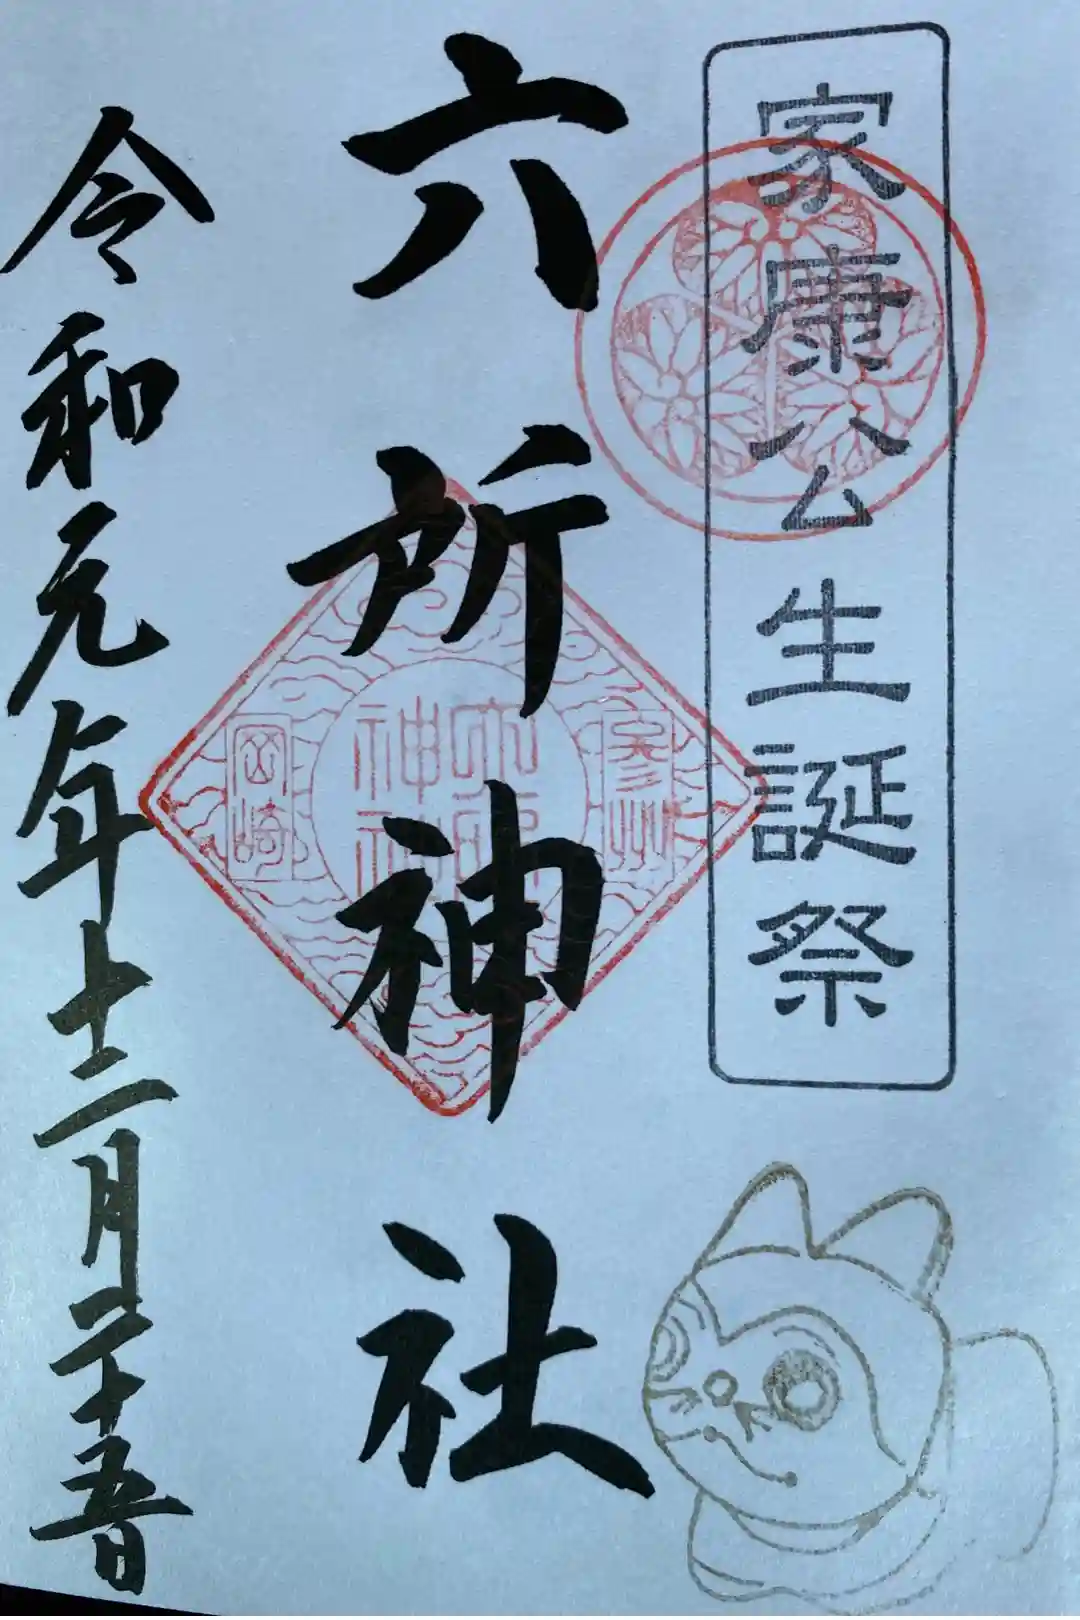 家康公生誕祭
六所神社
参州
六所
神社
岡崎
令和元年十二月二十五日